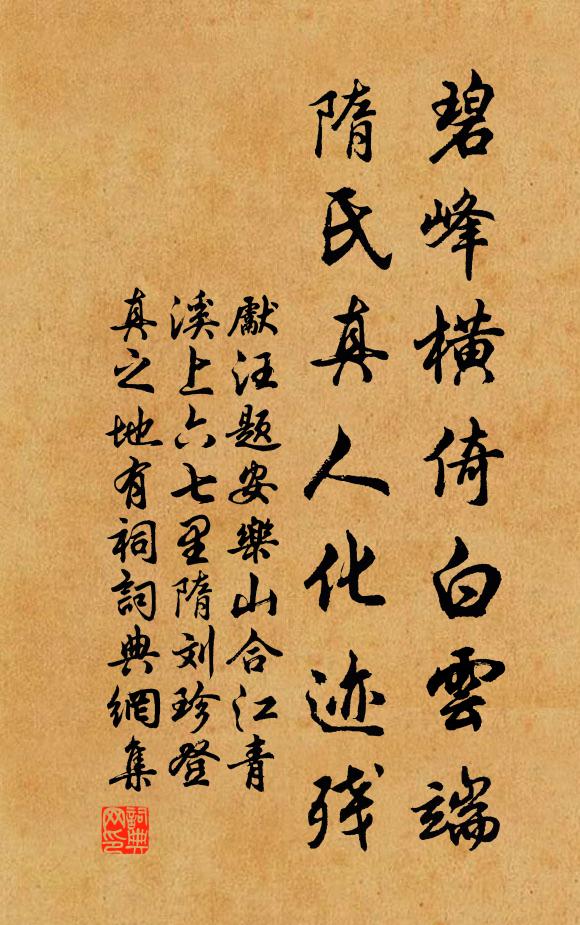 碧峰橫倚白雲端
隋氏真人化迹残
獻汪题安樂山合江青
溪上六七里隋刘珍登
真之地有祠詞典網集
詞典网印